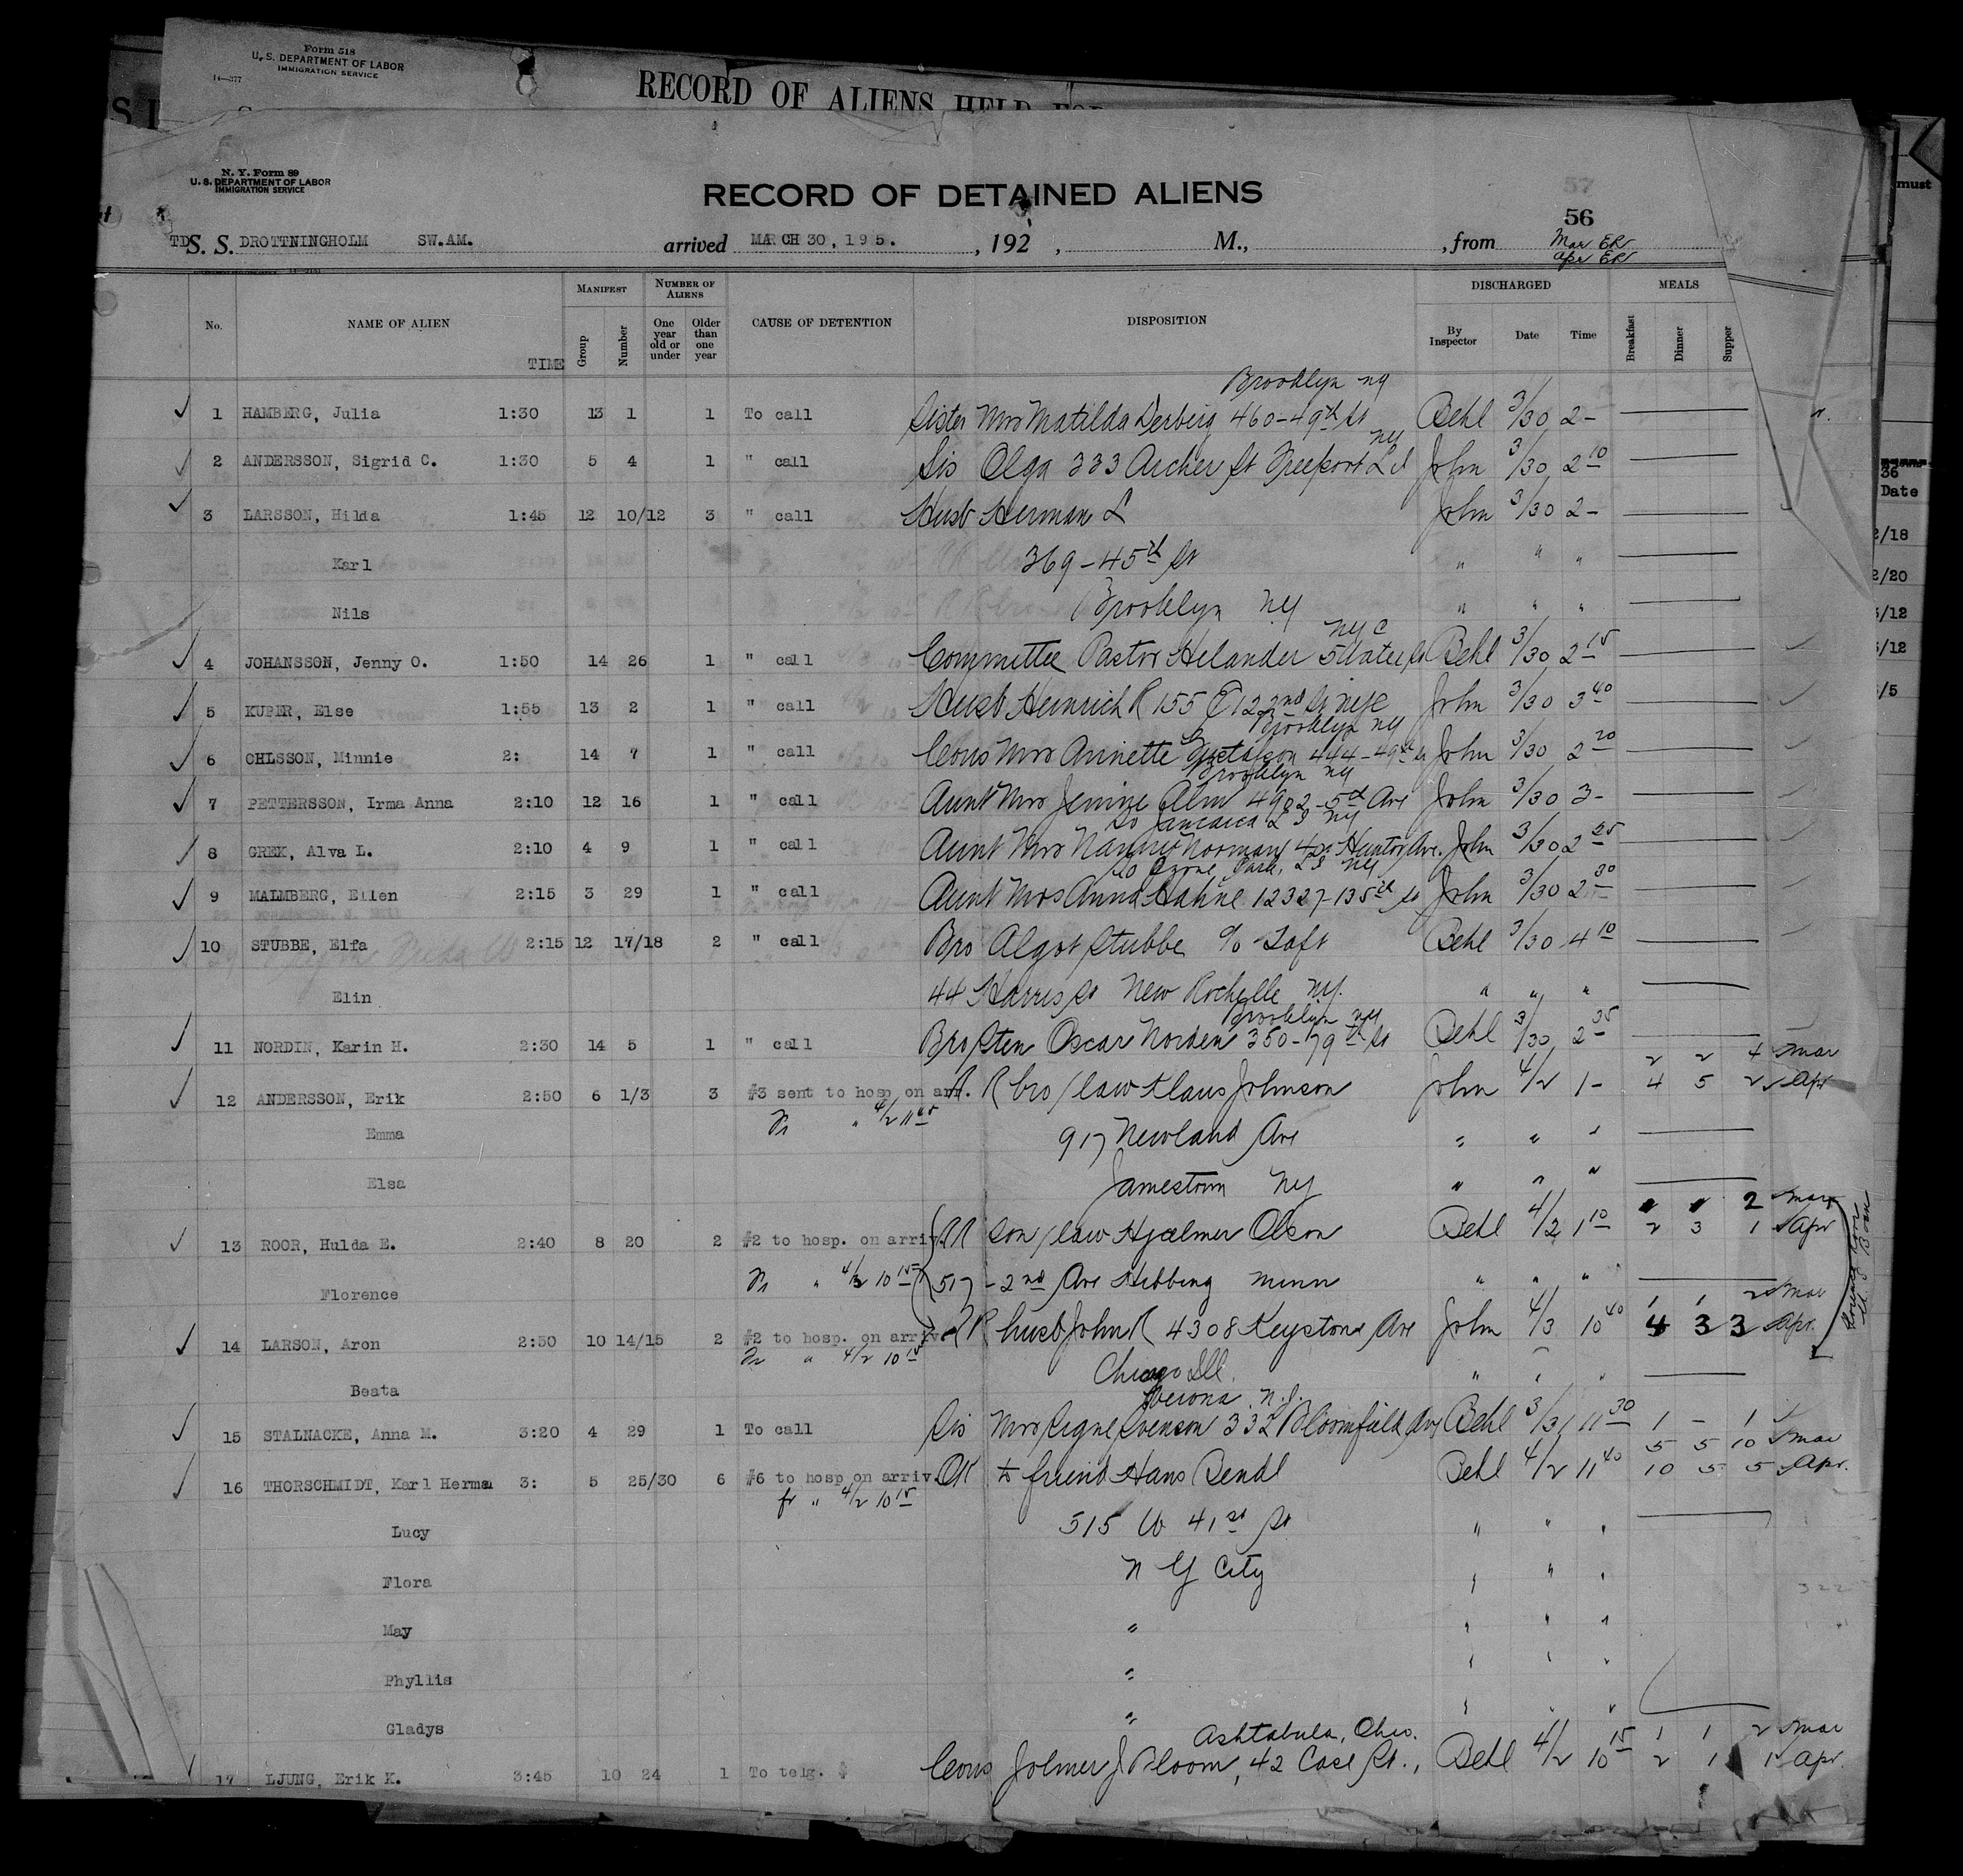 Form 518
U. S. DEPARTMENT OF LABOR
IMMIGRATION SERVICE
14—377
RECORD OF ALIENS HELD FOR
N. Y. Form 89
U. S. DEPARTMENT OF LABOR
IMMIGRATION SERVICE
RECORD OF DETAINED ALIENS
57
56
TD S. S. DROTTNINGHOLM SW.AM. arrived MARCH 30, 195. , 192 , M., , from Mar ER
Apr ER
No. NAME OF ALIEN TIME MANIFEST Group Number NUMBER OF ALIENS One year old or under Older than one year CAUSE OF DETENTION DISPOSITION DISCHARGED By Inspector Date Time MEALS Breakfast Dinner Supper
Brooklyn ny
1 HAMBERG, Julia 1:30 13 1 1 To call Sister Mrs Matilda Derberg 460-49th St Behl 3/30 2-
ny
2 ANDERSSON, Sigrid C. 1:30 5 4 1 " call Sis Olga 333 Archer St Freeport L I John 3/30 2 10
3 LARSSON, Hilda 1:45 12 10/12 3 " call Husb Herman L John 3/30 2-
Karl 369-45th St " " "
Nils Brooklyn NY " " "
NYC
4 JOHANSSON, Jenny O. 1:50 14 26 1 " call Committee Pastor Helander 5 Water St Behl 3/30 2 15
5 KUPER, Else 1:55 13 2 1 " call Husb Heinrich R 155 E 122nd St NYC John 3/30 3 40
Brooklyn NY
6 OHLSSON, Minnie 2: 14 7 1 " call Cous Mrs Annette Gustafson 444-49th St John 3/30 2 20
Brooklyn NY
7 PETTERSSON, Irma Anna 2:10 12 16 1 " call Aunt Mrs Jennie Alm 4902-5th Ave John 3/30 3-
So Jamaica L I NY
8 GREK, Alva L. 2:10 4 9 1 " call Aunt Mrs Norman Hunter Ave. John 3/30 2 25
So Ozone Park, L I NY
9 MALMBERG, Ellen 2:15 3 29 1 " call Aunt Mrs Anna Hahne 12327-135th St John 3/30 2 30
10 STUBBE, Elfa 2:15 12 17/18 2 " call Bro Algot Stubbe c/o Taft Behl 3/30 4 10
Elin 44 Harris St New Rochelle NY. " " "
Brooklyn NY
11 NORDIN, Karin H. 2:30 14 5 1 " call Bro Sten Oscar Norden 350-79th St Behl 3/30 2 35
2 2 4 Mar
12 ANDERSSON, Erik 2:50 6 1/3 3 #3 sent to hosp on arr. R R bro/law Klaus Johnson John 4/2 1- 4 5 2 Apr
Fr " 4/2 11 45
Emma 917 Newland Ave " " "
Elsa Jamestown NY " " "
2 Mar
13 ROOR, Hulda E. 2:40 8 20 2 #2 to hosp. on arriv. RR son/law Hjalmer Olson Behl 4/2 1 10 2 3 1 Apr
Florence Fr " 4/2 10 15 517-2nd Ave Hibbing Minn " " "
1 1 2 Mar
14 LARSON, Aron 2:50 10 14/15 2 #2 to hosp. on arriv. R R husb John R 4308 Keystone Ave John 4/3 10 40 4 3 3 Apr.
Fr " 4/2 10 15
Beata Chicago Ill. " " "
Verona N.J.
15 STALNACKE, Anna M. 3:20 4 29 1 To call Sis Mrs Signe Svenson 332 Bloomfield Ave Behl 3/31 11 30 1 - 1
5 5 10 Mar
16 THORSCHMIDT, Karl Herman 3: 5 25/30 6 #6 to hosp on arriv. OK to friend Hans Bendl Behl 4/2 11 40 10 5 5 Apr.
fr " 4/2 10 15
Lucy 515 W 41st St " " "
Flora N Y City " " "
May " " " "
Phyllis " " " "
Gladys " " " "
Ashtabula, Ohio. 1 1 2 Mar
17 LJUNG, Erik K. 3:45 10 24 1 To telg. Cous Jolmer J Bloom, 42 Case St., Behl 4/2 10 15 2 1 1 Apr.
must
36
Date
2/18
2/20
5/12
5/12
/5